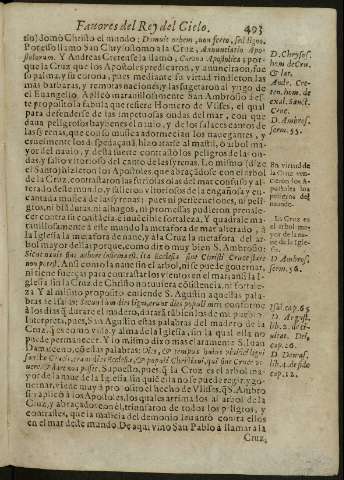 Fautores del Rey del Cielo. 493
sto) domò Christo el mundo: Domuit orbem, non ferro, sed ligno.
Por esso llamo San Chrysostomo a la Cruz, Annuntiatio Apo-
stolorum. Y Andreas Cretense la llamò, Corona Apostolica; por-
que la Cruz que los Apostoles predicaron, y anunciaron, fue
su palma, y su corona, pues mediante su virtud rindieron las
mas barbaras, y remotas naciones, y las sugetaron al yugo de
el Evangelio. Aplicò maravillosamente San Ambrosio à es-
te proposito la fabula que refiere Homero de Vlises, el qual
para defenderse de las impetuosas ondas del mar, con que
dava peligrosos bayvenes el navio, y de los falaces cantos de
las syrenas, que con su musica adormecian los navegantes, y
cruelmente los despedaçauã, hizo atarse al mastil, ò arbol ma-
yor del navio, y desta suerte contrastò los peligros de las on-
das, y salio vitorioso del canto de las syrenas. Lo mismo (dize
el Santo) hizieron los Apostoles, que abraçãdose con el arbol
de la Cruz, contrastaron las furiosas olas del mar confuso y al-
terado deste mundo, y salieron vitoriosos de la engañosa y en-
cantada musica de las syrenas; pues ni persecuciones, ni peli-
gros, ni blanduras, ni alhagos, ni promessas pudieron prevale-
cer contra su constãcia è invencible fortaleza. Y quadrale ma-
ravillosamente à este mundo la metafora de mar alterado, à
la Iglesia la metafora de nave, y à la Cruz la metafora del ar-
bol mayor della; porque, como dixo muy bien S. Ambrosio:
Sicut navis sine arbore infirma est, ita Ecclesia sine Christi Cruce stare
non potest. Assi como la nave sin el arbol, ni se puede governar,
ni tiene fuerças para contrastar los vientos en el mar; assi la
Iglesia sin la Cruz de Christo no tuviera cõsistencia, ni fortale-
za. Y al mismo proposito entiende S. Agustin aquellas pala-
bras de Isaias: Sicut enim dies ligni, erunt dies populi mei: conforme
à los dias q̃ durare el madero, durarà tãbien los de mi pueblo.
Interpreta, pues, San Agustin estas palabras del madero de la
Cruz, q̃ es como vida y alma de la Iglesia, sin la qual ella no
puede permanecer. Y lo mismo dixo mas claramente S. Iuan
Damasceno, cõ estas palabras:
vinar, viene muy à proposito el hecho de Vlises, q̃ S. Ambro-
sio aplicò à los Apostoles, los quales arrimados al arbol de la
Cruz, y abraçados con el, triunfaron de todos los peligros, y
contrastes, que la malicia del demonio levantò contra ellos
en el mar deste mundo. De aqui vino San Pablo à llamar à la
Cruz,
D. Chrysos.
hom. de Cru.
& lat.
Andr. Cre-
ten. hom. de
exal. Sanct.
Cruc.
D. Ambros.
serm. 55.
En virtud de
la Cruz ven-
cieron los A-
postoles los
peligros del
mundo.
La Cruz es
el arbol ma-
yor de la na-
ve de la Igle-
sia.
D. Ambros.
serm. 56.
Isai. cap. 65.
D. August.
lib. 2. de ci-
vitat. Dei,
cap. 26.
D. Damas.
lib. 4. de fide
cap. 12.